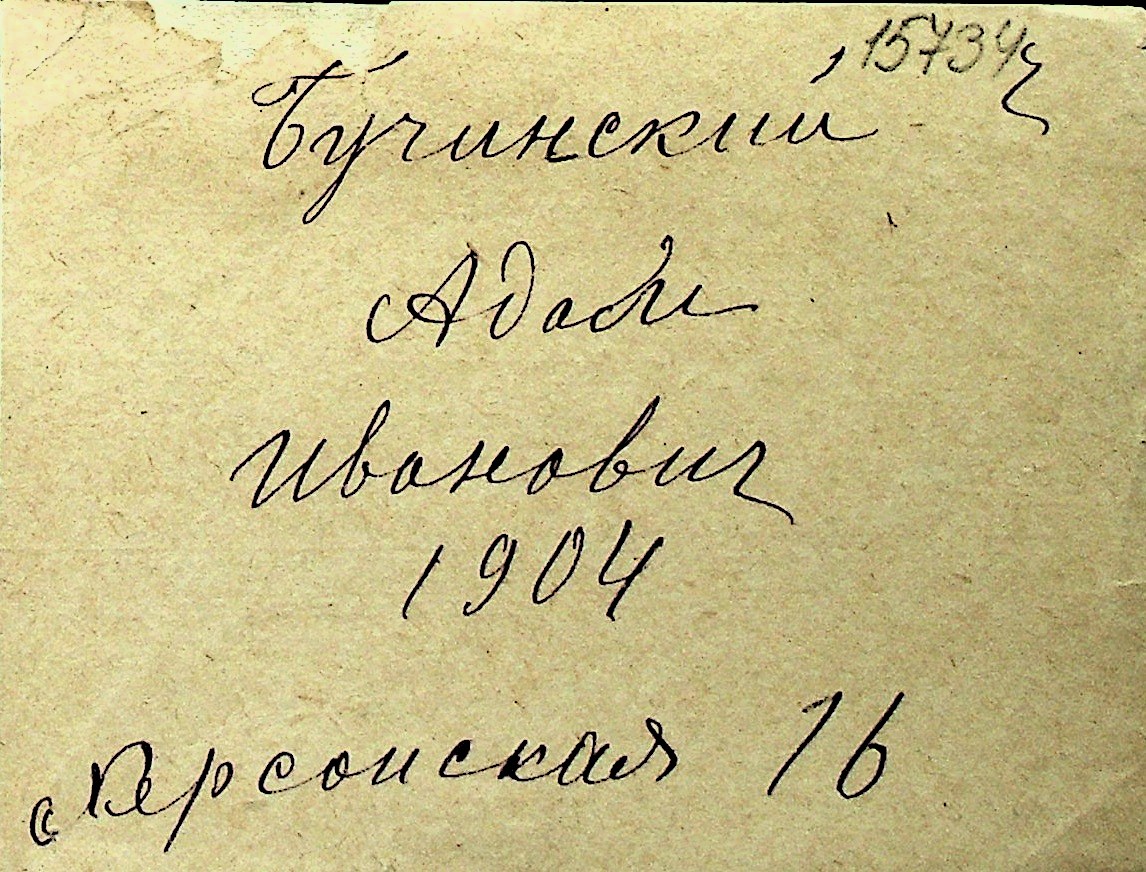 15734
Бучинский
Адам
Иванович
1904
Херсонская 16